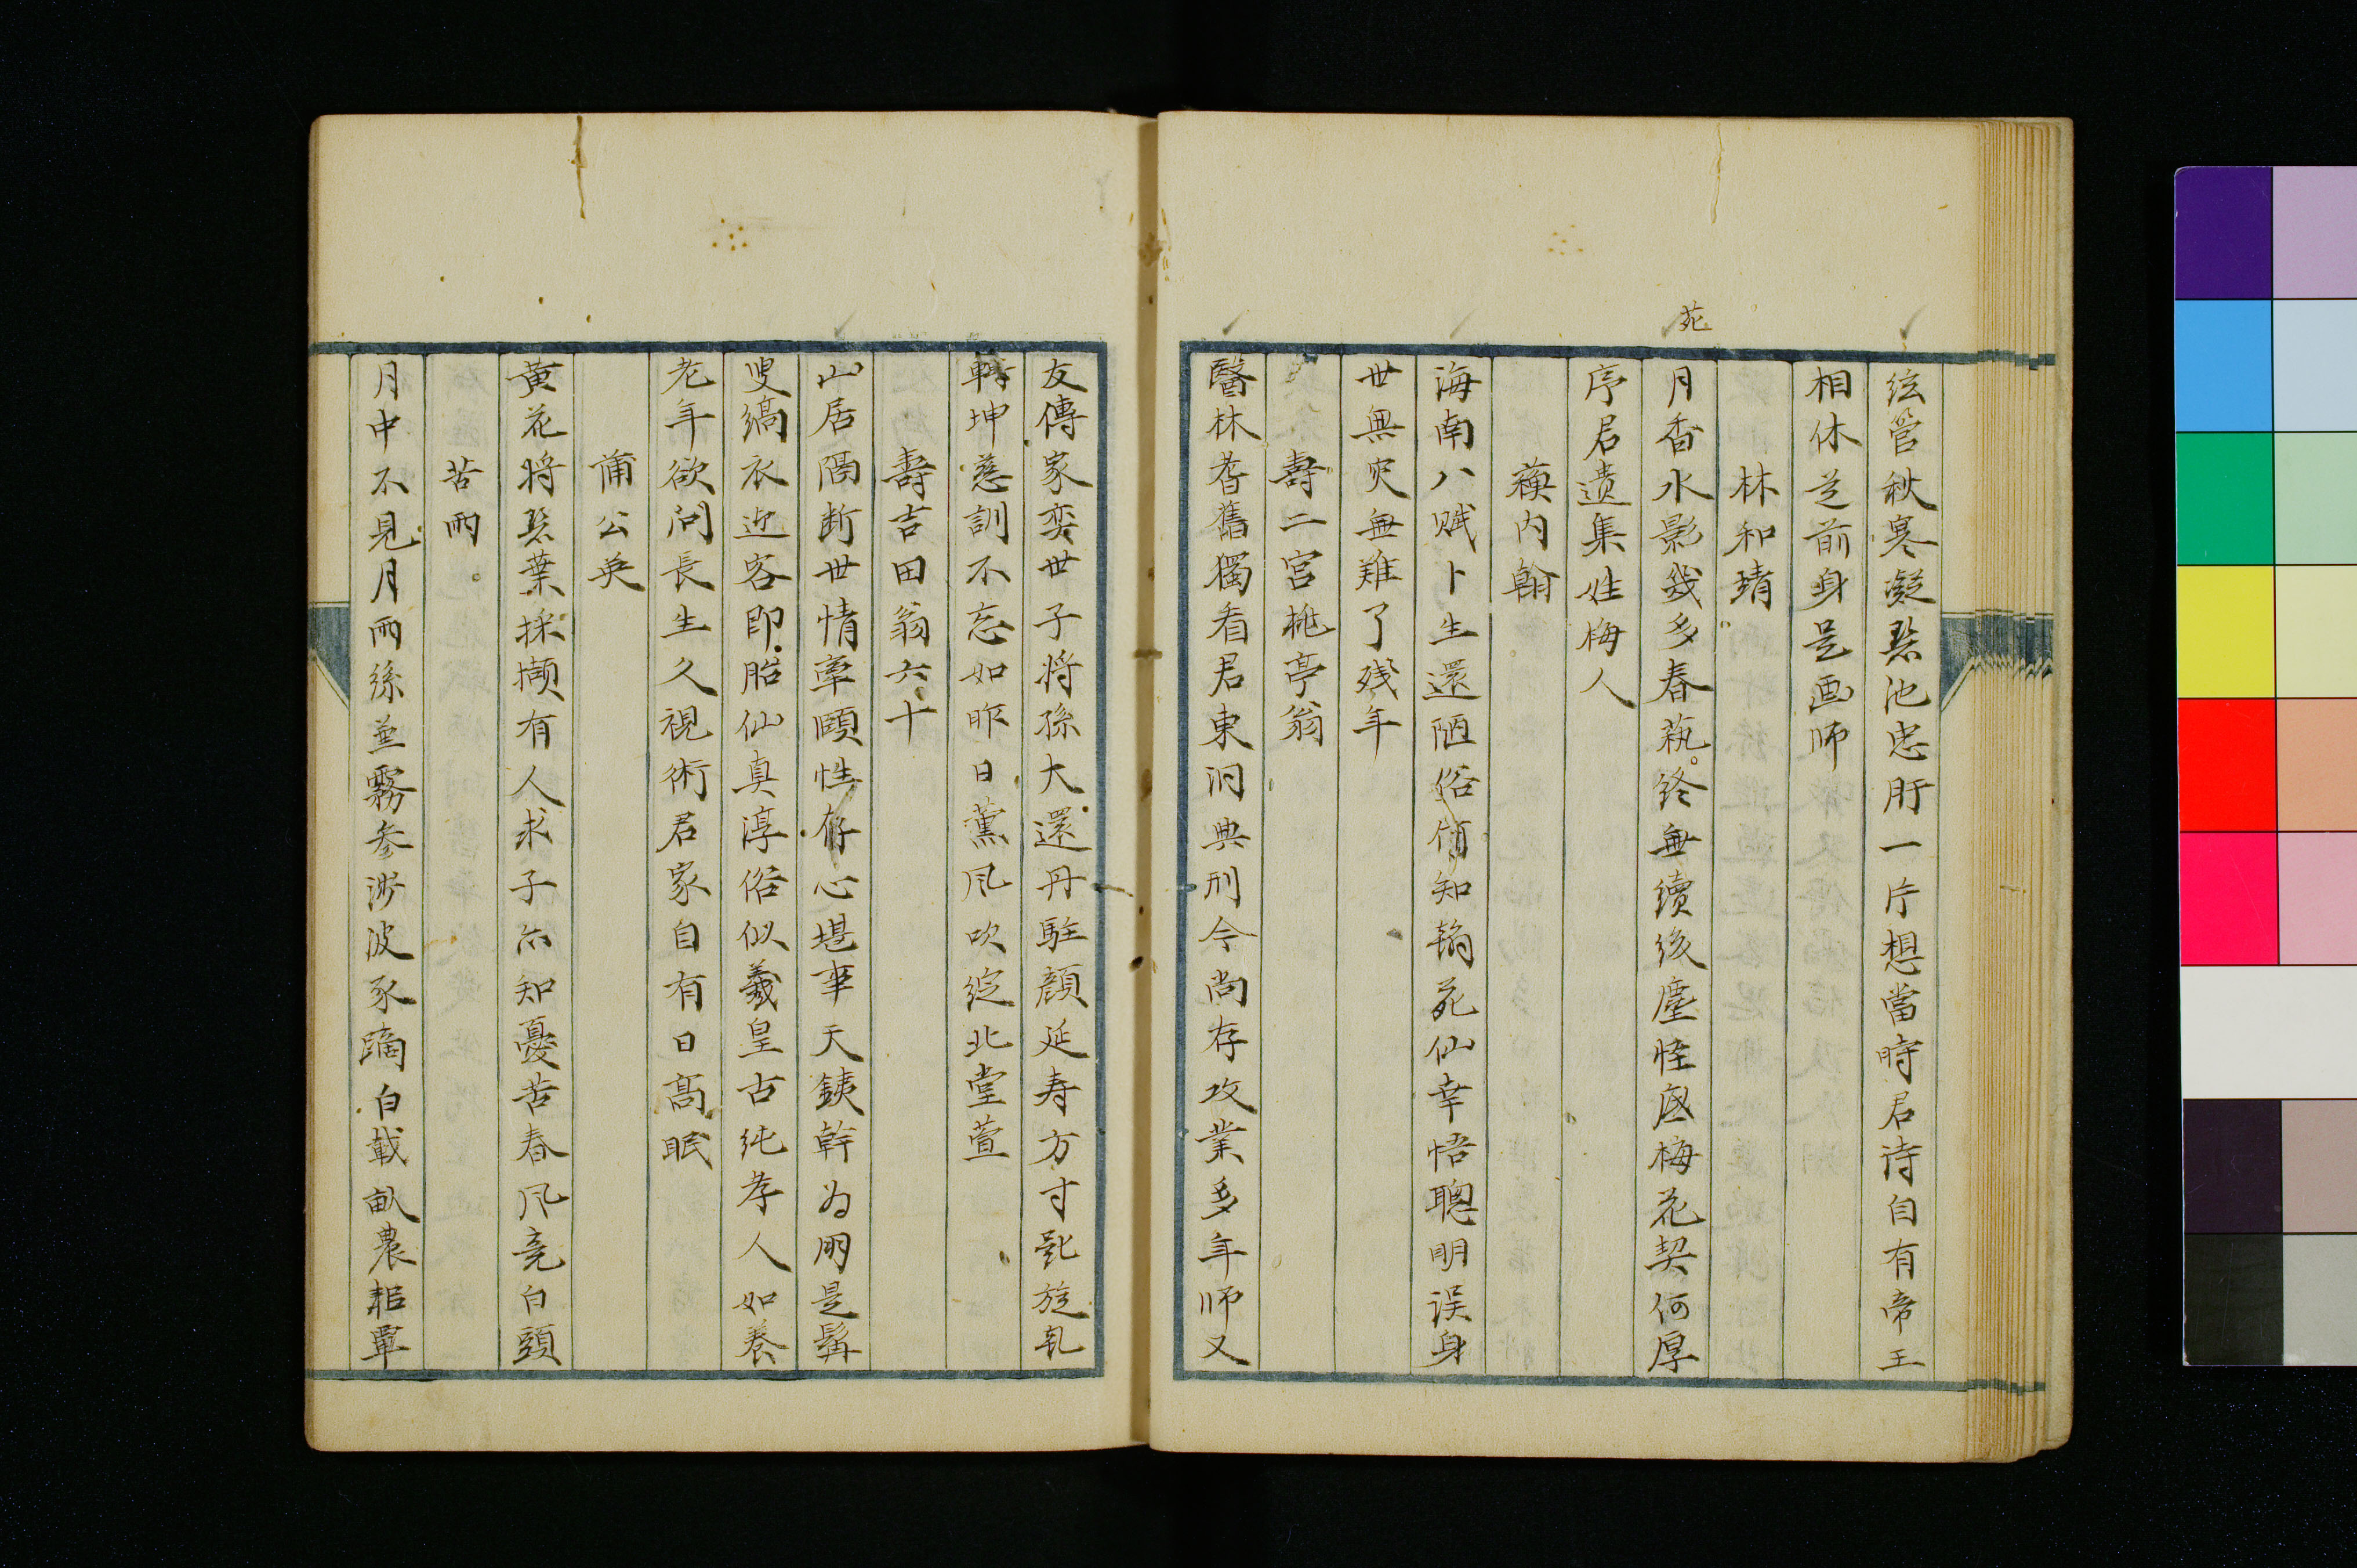 苑
絃管秋寒凝碧池忠肝一片想當時君詩自有帝王
相休道前身是画师
林和靖
月香水影幾多春執終無續後塵怪底梅花契何厚
序君遗集姓梅人
蘓内翰
海南八賦卜生還陋俗傾知謫死仙幸悟聰明误身
世無灾無難了殘年
壽二宮桃亭翁
醫林耆舊獨看君東洞典刑今尚存攻業多年师又
友傳家奕世子将孫大還丹駐顔延寿方寸匙旋乹
轉坤慈訓不忘如昨日薫风吹綻北堂萱
壽吉田翁六十
山居隔断世情牽頤性存心堪事天鉄幹为朋是髯
叟縞衣迎客即胎仙真淳俗似羲皇古純孝人如養
老年欲问長生久視術君家自有日高眠
蒲公英
黄花将碧葉採擷有人求子亦知憂苦春风竟白頭
苦雨
月中不見月雨絲並霧参渉波豕蹢白載畝農耜單